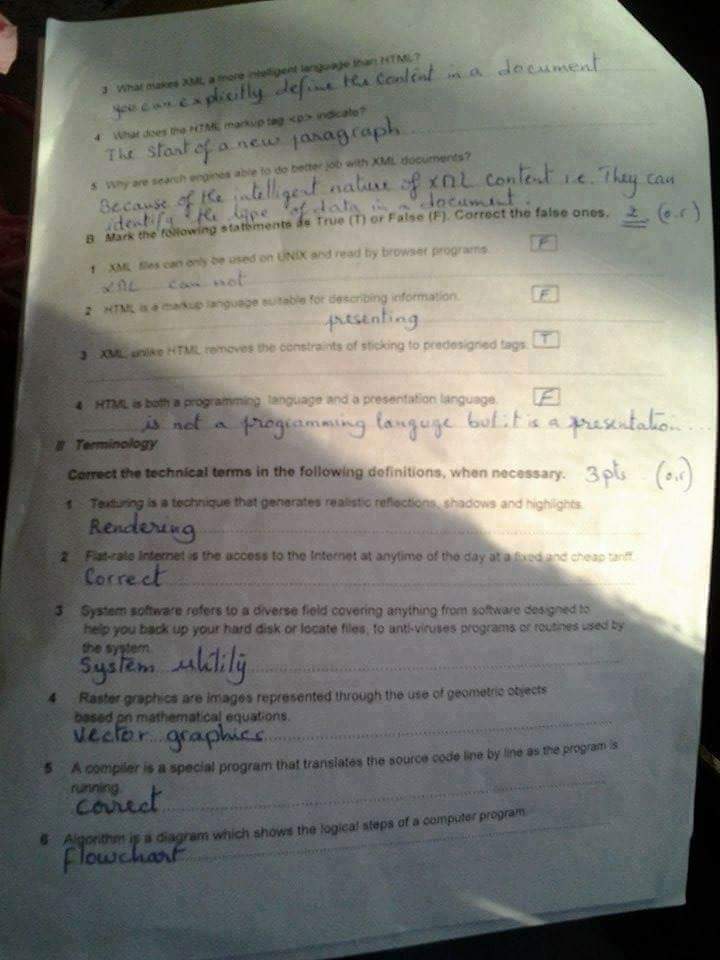 3 What makes XML a more intelligent language than HTML?
you can explicitly define the content in a document
4 What does the HTML markup tag <p> indicate?
The start of a new paragraph
5 Why are search engines able to do better job with XML documents?
Because of the intelligent nature of XML content i.e. They can
identify the type of data in a document.
B Mark the following statements as True (T) or False (F). Correct the false ones. 2 (0.5)
1 XML files can only be used on UNIX and read by browser programs. F
XML can not
2 HTML is a markup language suitable for describing information. F
presenting
3 XML, unlike HTML removes the constraints of sticking to predesigned tags. T
4 HTML is both a programming language and a presentation language. F
is not a programming languge but it is a presentation...
II Terminology
Correct the technical terms in the following definitions, when necessary. 3 pts (0.5)
1 Texturing is a technique that generates realistic reflections, shadows and highlights.
Rendering
2 Flat-rate Internet is the access to the Internet at anytime of the day at a fixed and cheap tariff.
Correct
3 System software refers to a diverse field covering anything from software designed to
help you back up your hard disk or locate files, to anti-viruses programs or routines used by
the system.
System utility
4 Raster graphics are images represented through the use of geometric objects
based on mathematical equations.
Vector graphics
5 A compiler is a special program that translates the source code line by line as the program is
running.
correct
6 Algorithm is a diagram which shows the logical steps of a computer program.
Flowchart